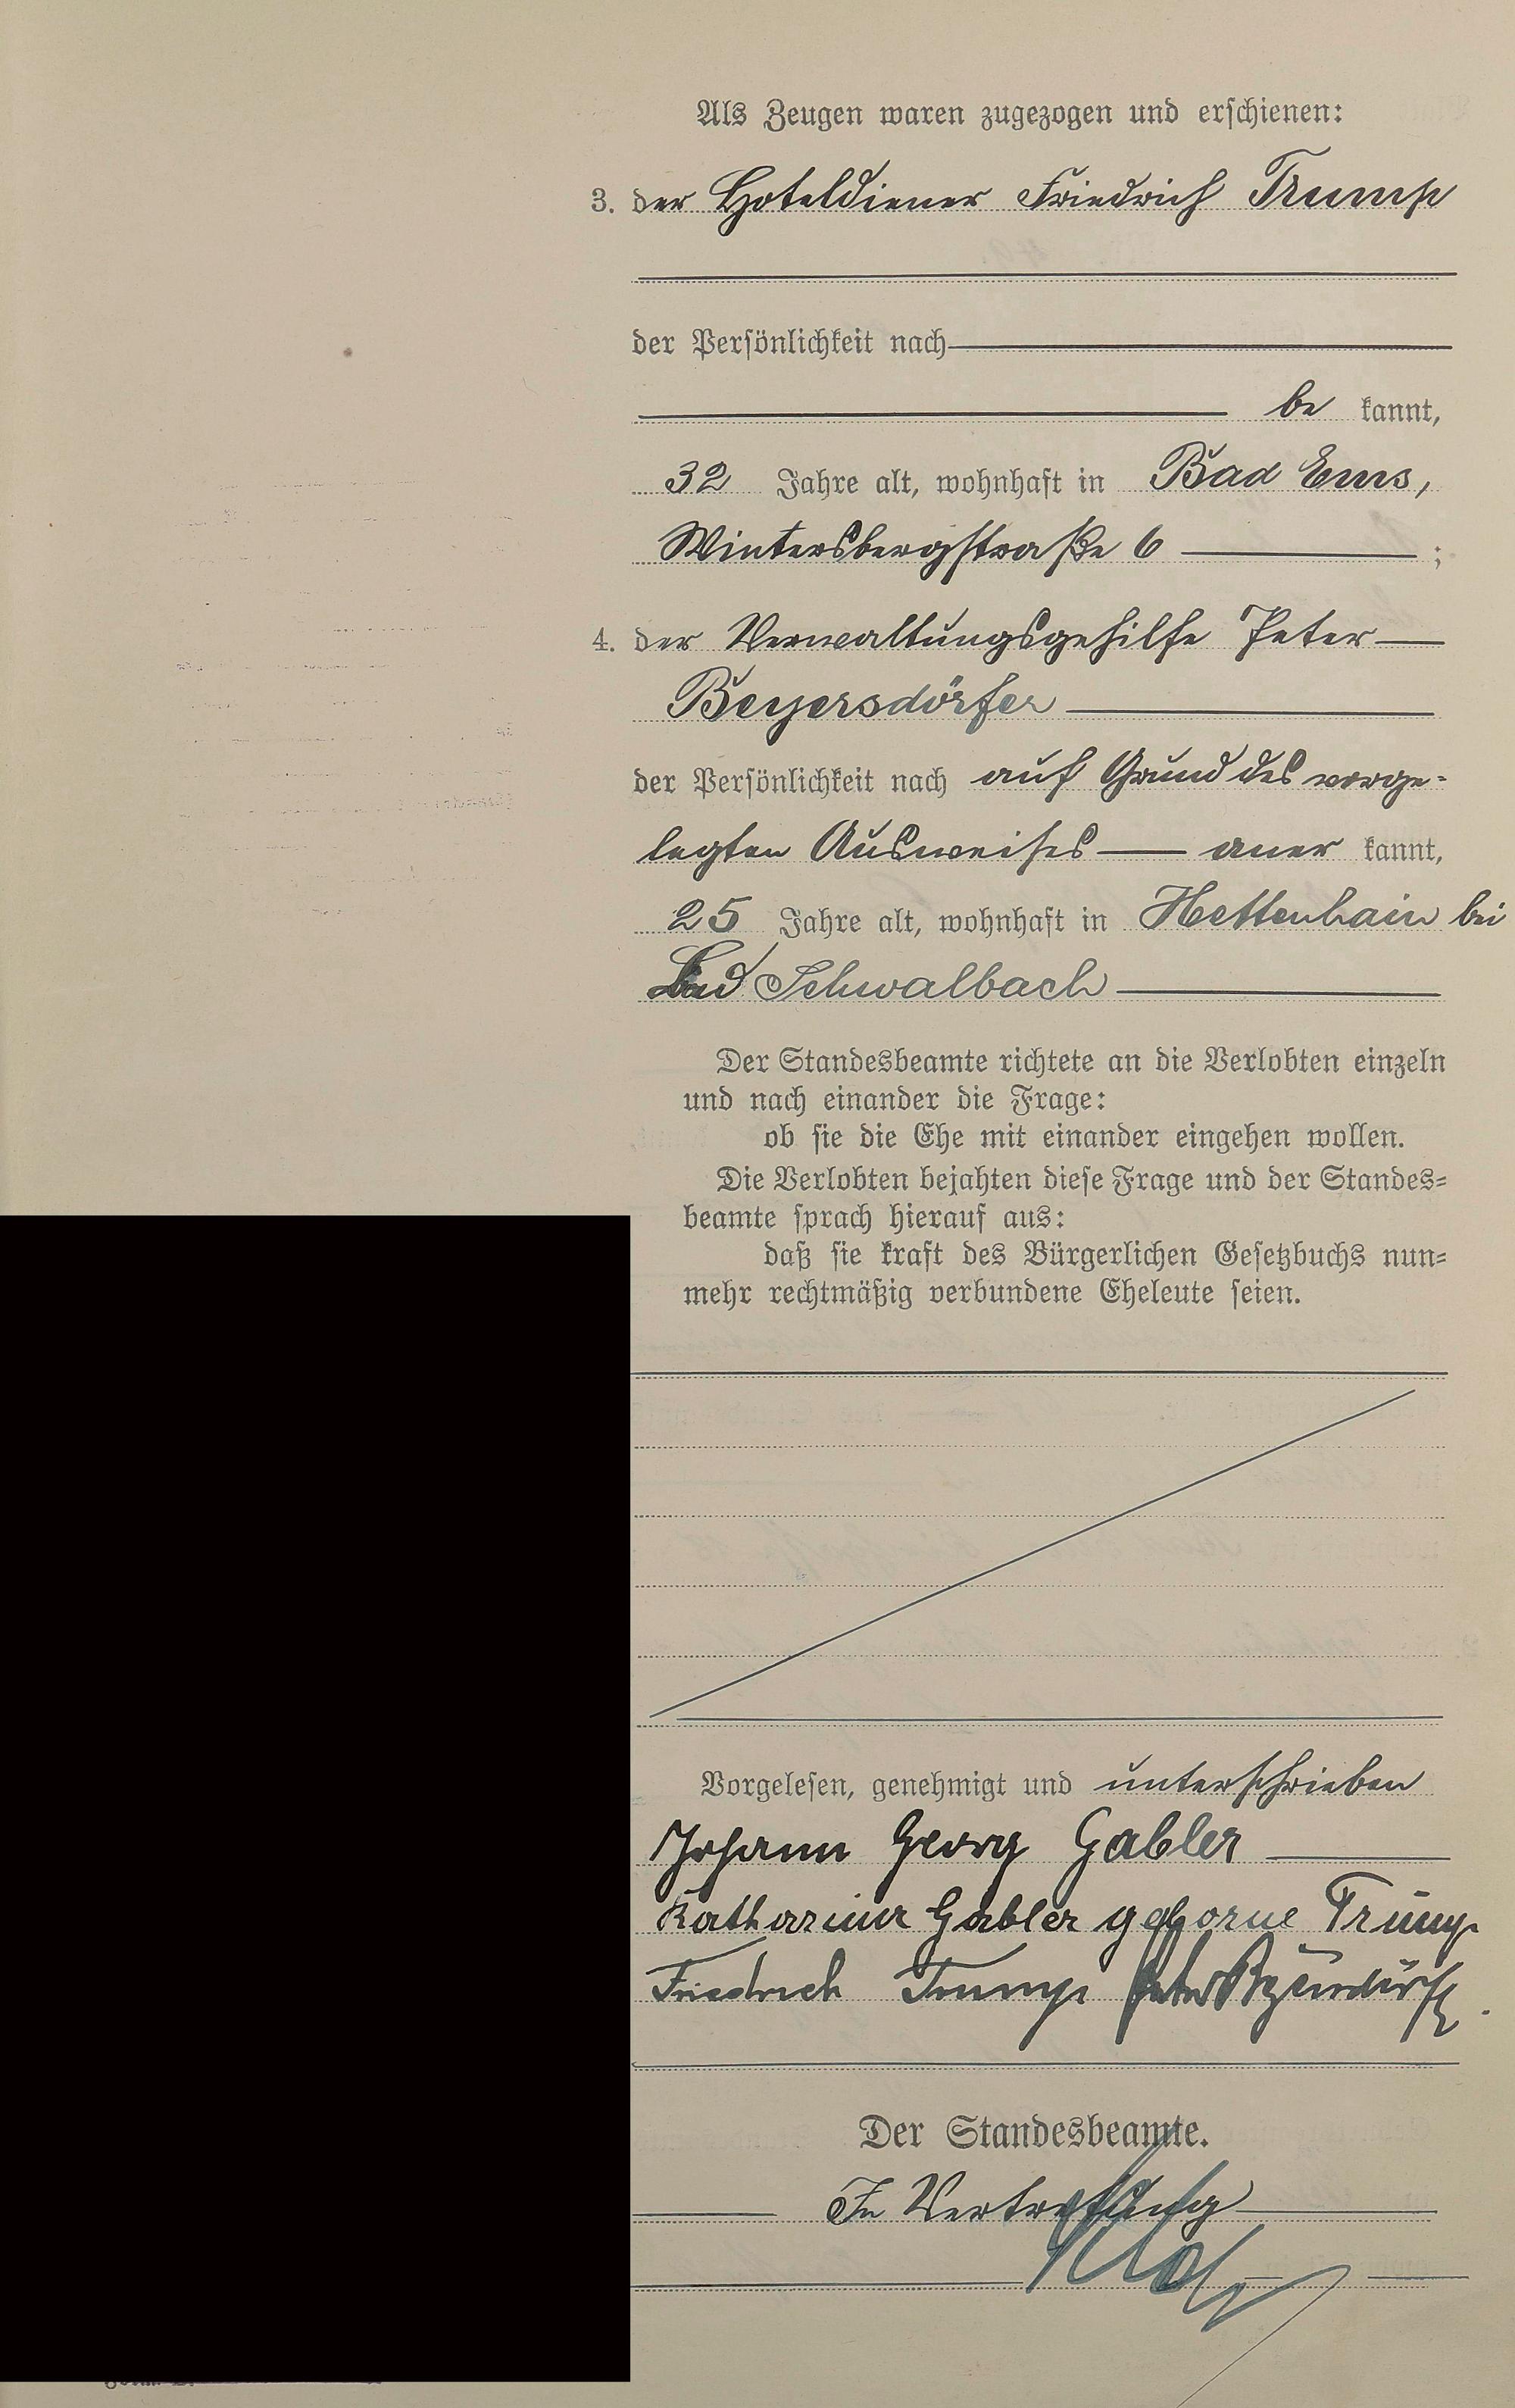 Als Zeugen waren zugezogen und erschienen:
3. der Hoteldiener Friedrich Trump
der Persönlichkeit nach
be kannt,
32 Jahre alt, wohnhaft in Bad Ems,
Wintersbergstraße 6 ;
4. der Verwaltungsgehilfe Peter
Beyersdörfer
der Persönlichkeit nach auf Grund des vorge-
legten Ausweises — aner kannt,
25 Jahre alt, wohnhaft in Hettenhain bei
Bad Schwalbach
Der Standesbeamte richtete an die Verlobten einzeln
und nach einander die Frage:
ob sie die Ehe mit einander eingehen wollen.
Die Verlobten bejahten diese Frage und der Standes-
beamte sprach hierauf aus:
daß sie kraft des Bürgerlichen Gesetzbuchs nun-
mehr rechtmäßig verbundene Eheleute seien.
Vorgelesen, genehmigt und unterschrieben
Johann Georg Gabler
Katharina Gabler geborne Trump
Friedrich Trump Peter Beyersdörfer
Der Standesbeamte.
In Vertretung